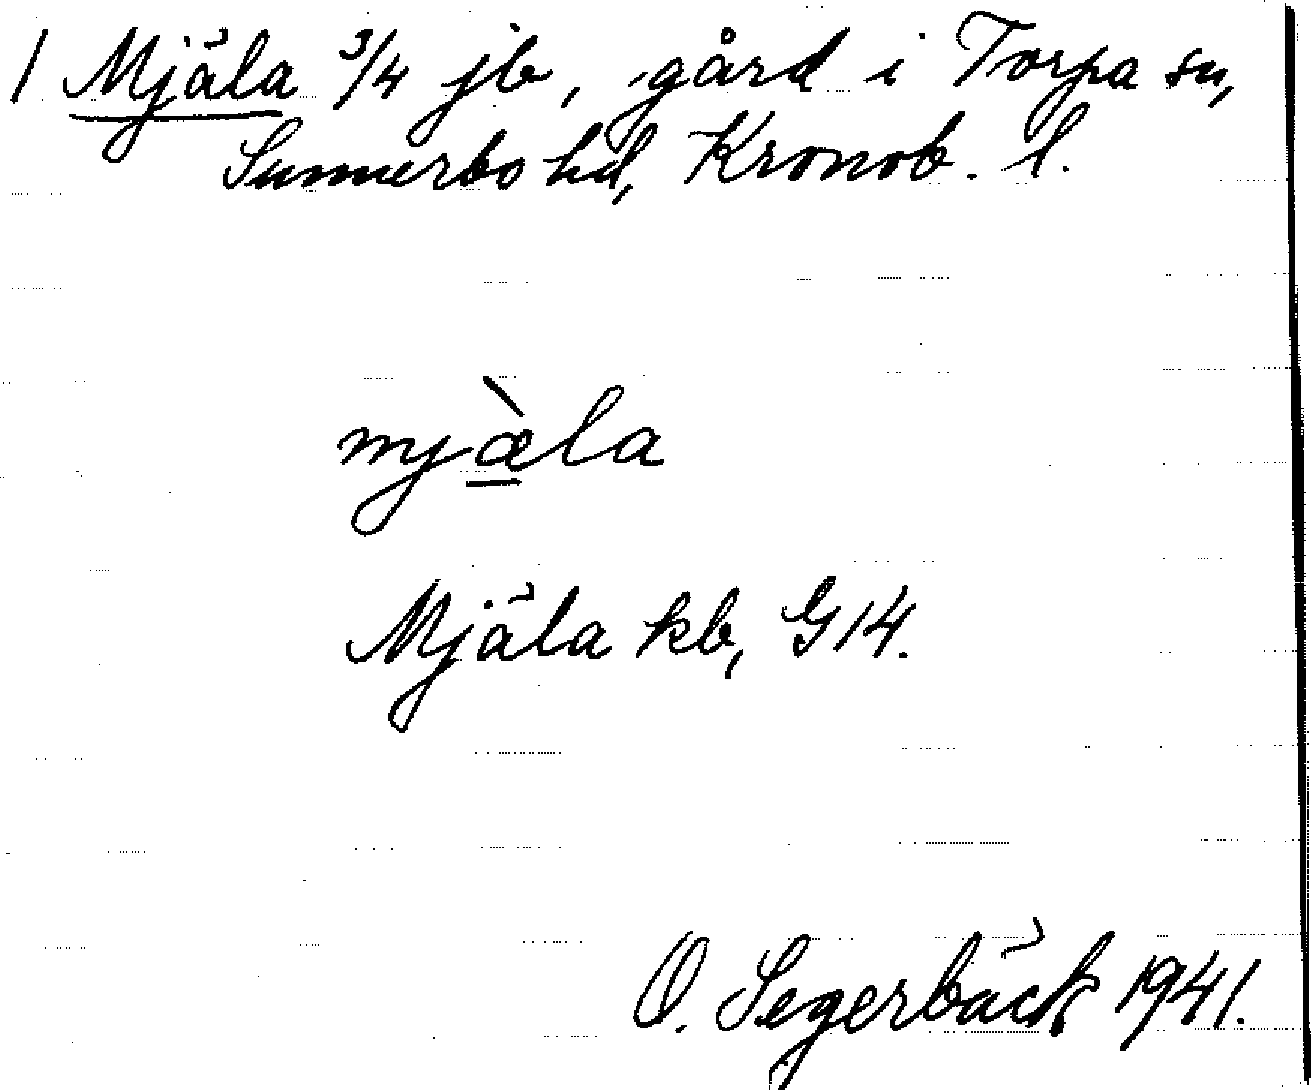 1 Mjäla 3/4 jb, gård i Torpa sn,
Sunnerbo hd, Kronob. l.
mjæ̀la
Mjäla kb, G14.
O. Segerbäck 1941.